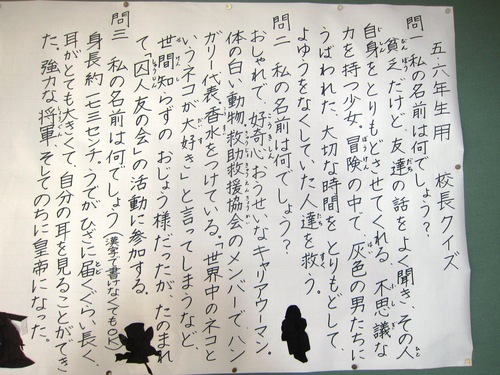 五・六年生用 校長クイズ
問一 私の名前は何でしょう？
貧乏だけど、友達の話をよく聞き、その人
自身をとりもどさせてくれる、不思議な
力を持つ少女。冒険の中で、灰色の男たちに
うばわれた、大切な時間をとりもどして、
よゆうをなくしていた人達を救う。
問二 私の名前は何でしょう？
おしゃれで、好奇心おうせいなキャリアウーマン。
体の白い動物救助救援協会のメンバーで、ハン
ガリー代表。香水をつけている。「世界中のネコと
いうネコが大好き」と言ってしまうなど、
世間知らずのおじょう様だったが、たのまれ
て、「囚人友の会」の活動に参加する。
問三 私の名前は何でしょう（漢字で書けなくてもOK）
身長約一七三センチ、うでがひざに届くぐらい長く、
耳がとても大きくて、自分の耳を見ることができ
た。強力な将軍、そしてのちに皇帝になった。